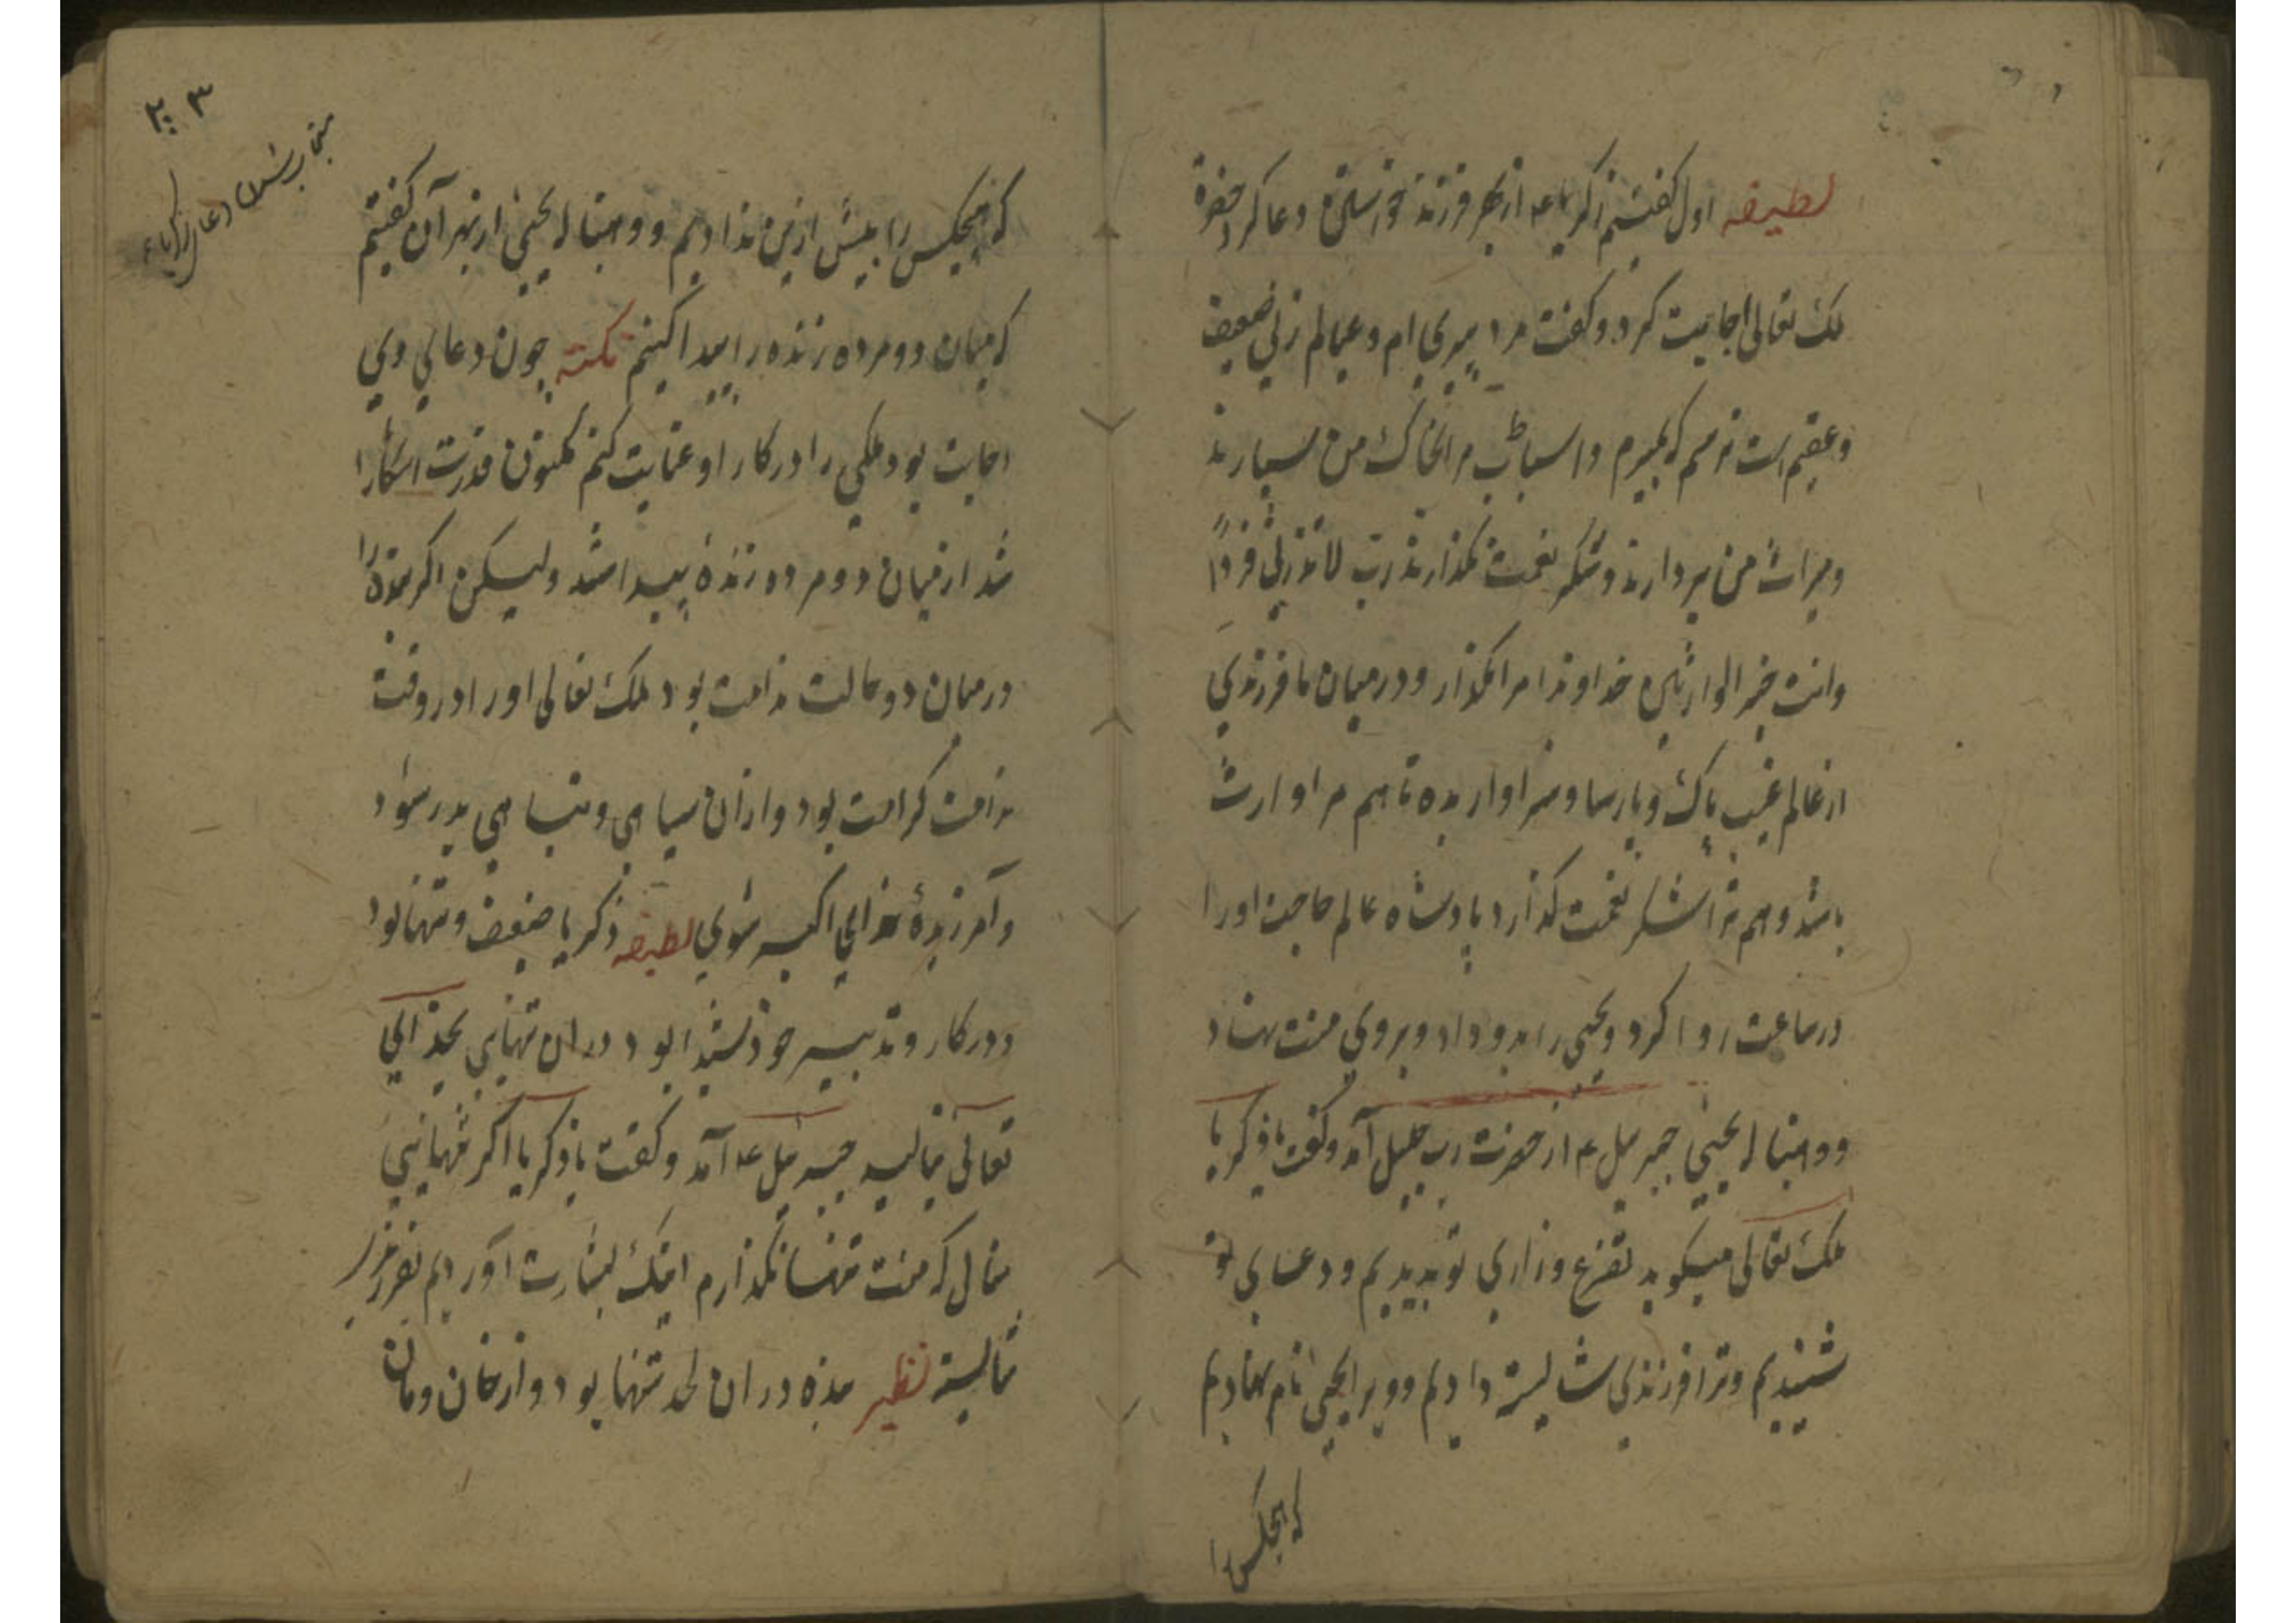 لطیفه اول گفتیم زکریا ع از بهر فرزند خواستن دعا کرد حضرة
ملک تعالی اجابت کرد و گفت مرد پیری ام و عیالم زنی ضعیف
وعقیم است ترسم که بمیرم و اسباب مرا بخاک من بسپارند
ومیراث من بردارند و شکر نعمت نگذارند رب لا تذرنی فردًا
وانت خیر الوارثین خداوندا مرا مگذار و درمیان ما فرزندی
از عالم غیب پاک و پارسا و سزاوار بده تا هم مرا وارث
باشد و هم ترا شکر نعمت گذارد پادشاه عالم حاجت او را
درساعت روا کرد و یحیی را بدو داد و بروی منت نهاد
ووهبنا له یحیی جبرییل ع از حضرت رب جلیل آمد و گفت یا زکریا
ملک تعالی میگوید تضرع و زاری تو بدیدیم و دعای تو
شنیدیم و ترا فرزندی شایسته دادیم و ویرا یحیی نام نهادیم
که هیچکس را
۳۰۳
دعا زکریا ع
که هیچکس را پیش ازین ندادیم و وهبنا له یحیی از بهر آن گفتیم
که میان دو مرده زنده را پیدا کنیم نکته چون دعای وی
اجابت بود ملکی را در کار او عنایت کنم کمنون قدرت آشکارا
شد از میان دو مرده زندهٔ پیدا شد ولیکن اگر بنده را
درمیان دو حالت ندامت بود ملک تعالی او را در وقت
ندامت کرامت بود و ازان سیاهی و تباهی بدر شود
و آمرزیدهٔ خدای اکبر شوی لطیفه زکریا ضعیف و تنها بود
و در کار و تدبیر خود شیدا بود دران تنهایی بخدای
تعالی بنالید جبرئیل ع آمد و گفت یا زکریا اگر تنهایی
منال که منت تنها نگذارم اینک بشارت آوردیم بفرزند
شایسته نظیر بنده دران لحد تنها بود و از خان و مان